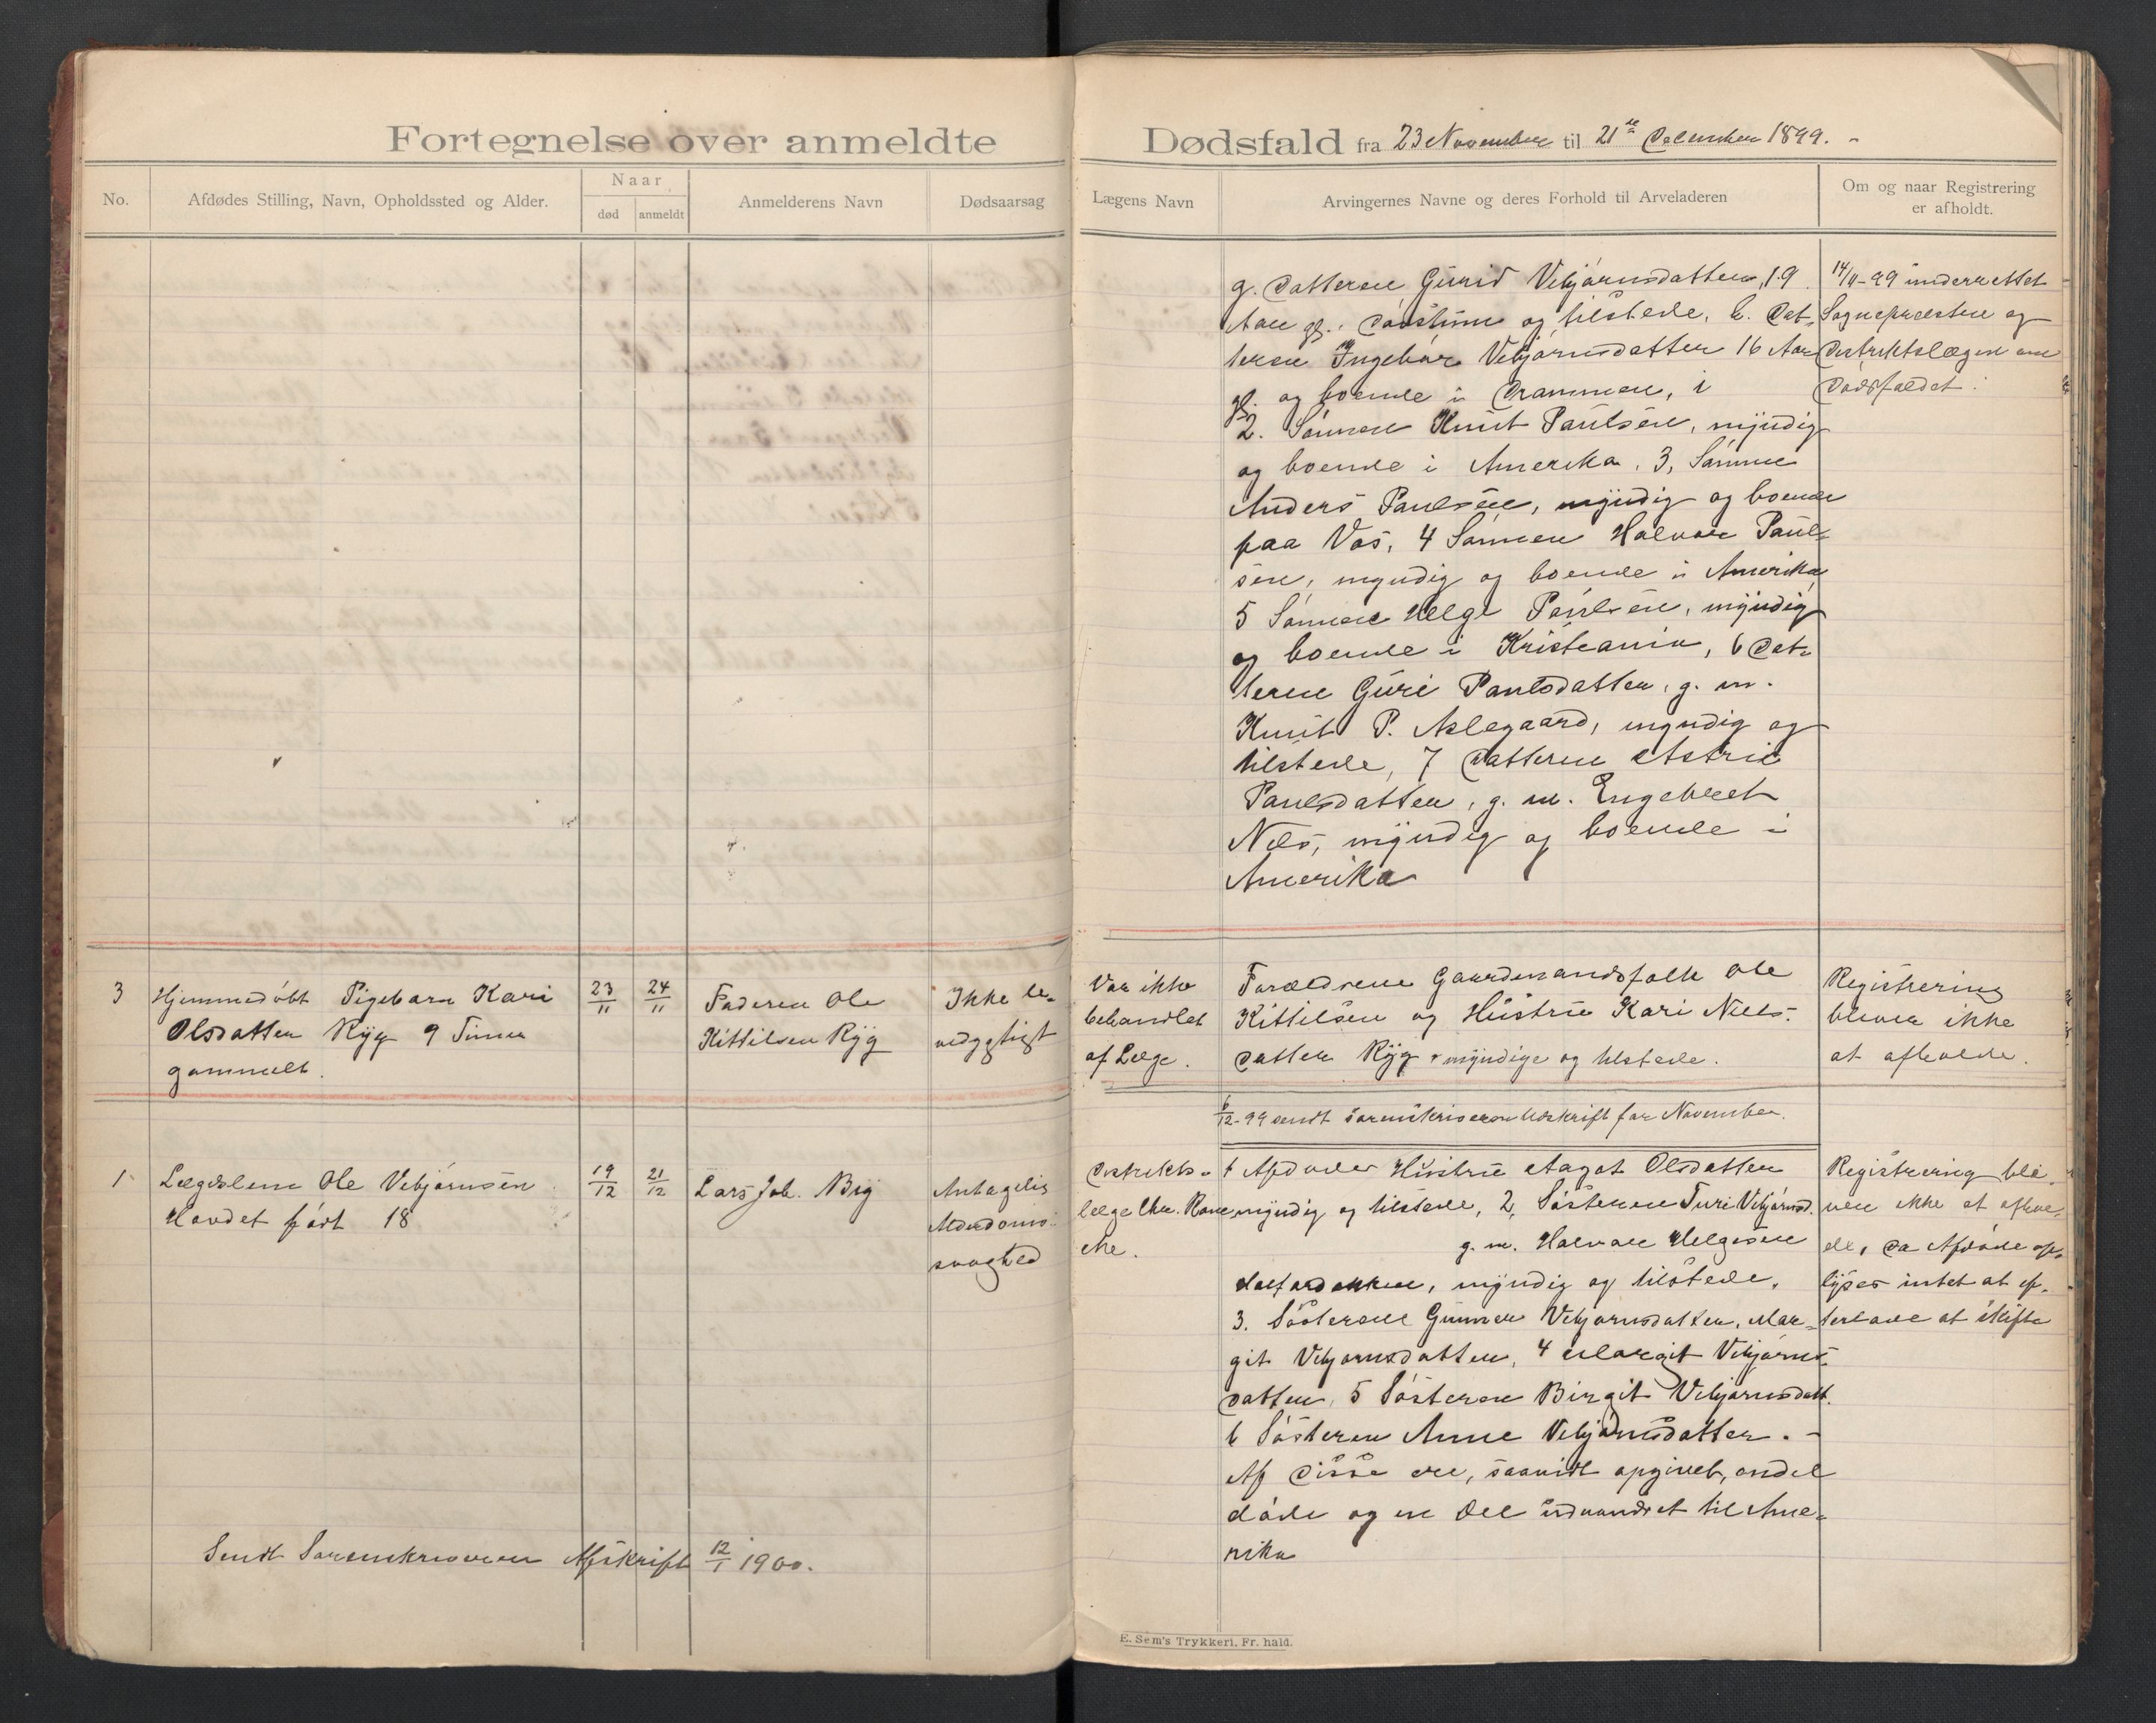 Fortegnelse over anmeldte
No.
Afdødes Stilling, Navn, Opholdssted og Alder.
Naar
død
anmeldt
Anmelderens Navn
Dødsaarsag
3
Hjemmedøbt Pigebarn Kari
Olsdatter Ryg 9 Timer
gammelt.
23/11
24/11
Faderen Ole
Kittilsen Ryg
Ikke le-
vedygtigt
1
Lægdslem Ole Vebjørnsen
Hovdet født 18
19/12
21/12
Lars Joh. Big
Antagelig
Alderdoms-
svaghed
Sendt Sorenskriveren Afskrift 12/1 1900.
Dødsfald fra 23 November til 21de December 1899.
Lægens Navn
Arvingernes Navne og deres Forhold til Arveladeren
Om og naar Registrering
er afholdt.
g. Datteren Gunid Vebjørnsdatter, 19
Aar gl. og tilstede, h. Dat-
teren Ingebor Vebjørnsdatter 16 Aar
gl. og boende i Drammen, i
2. Sønnen Knut Paulsen, myndig
og boende i Amerika, 3, Sønnen
Anders Paulsen, myndig og boende
paa Vos, 4 Sønnen Halvor Paul-
sen, myndig og boende i Amerika
5 Sønnen Helge Paulsen, myndig
og boende i Kristiania, 6 Dat-
teren Guri Paulsdatter, g. m.
Knut P. Aslegaard, myndig og
tilstede, 7 Datteren Astrid
Paulsdatter, g. m. Engebret
Nils, myndig og boende i
Amerika
14/11-99 underrettet
Sognepresten og
Distriktslægen om
Dødsfaldet.
Var ikke
behandlet
af Læge.
Forældrene Gaardmandsfolk Ole
Kittilsen og Hustru Kari Niels-
datter Ryg myndige og tilstede.
Registrering
bliver ikke
at afholde.
6/12-99 sendt Sorenskriveren Udskrift for November.
Distrikts-
læge Chr.
1 Afdødes Hustru Aagot Olsdatter
myndig og tilstede, 2, Søsteren Turi Vebjørnsd.
g. m. Halvor Helgesen
myndig og tilstede.
3. Søsteren Gunner Vebjørnsdatter, Mar-
git Vebjørnsdatter, 4 Margit Vebjørns-
datter, 5 Søsteren Birgit Vebjørnsdatt.
6 Søsteren Anne Vebjørnsdatter.
Af disse ere, saavidt opgivet, endel
døde og en Del udvandret til Ame-
rika
Registrering bli-
ver ikke at afhol-
de, da Afdøde op-
lyses intet at ef-
terlade at skifte
E. Sem's Trykkeri, Fr. hald.